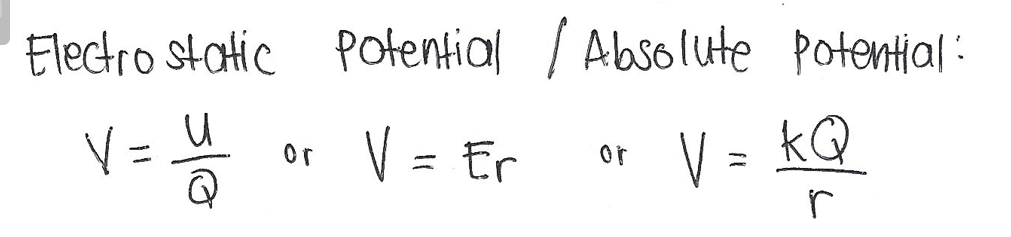 Electrostatic Potential / Absolute Potential:
V = U/Q or V = Er or V = kQ/r